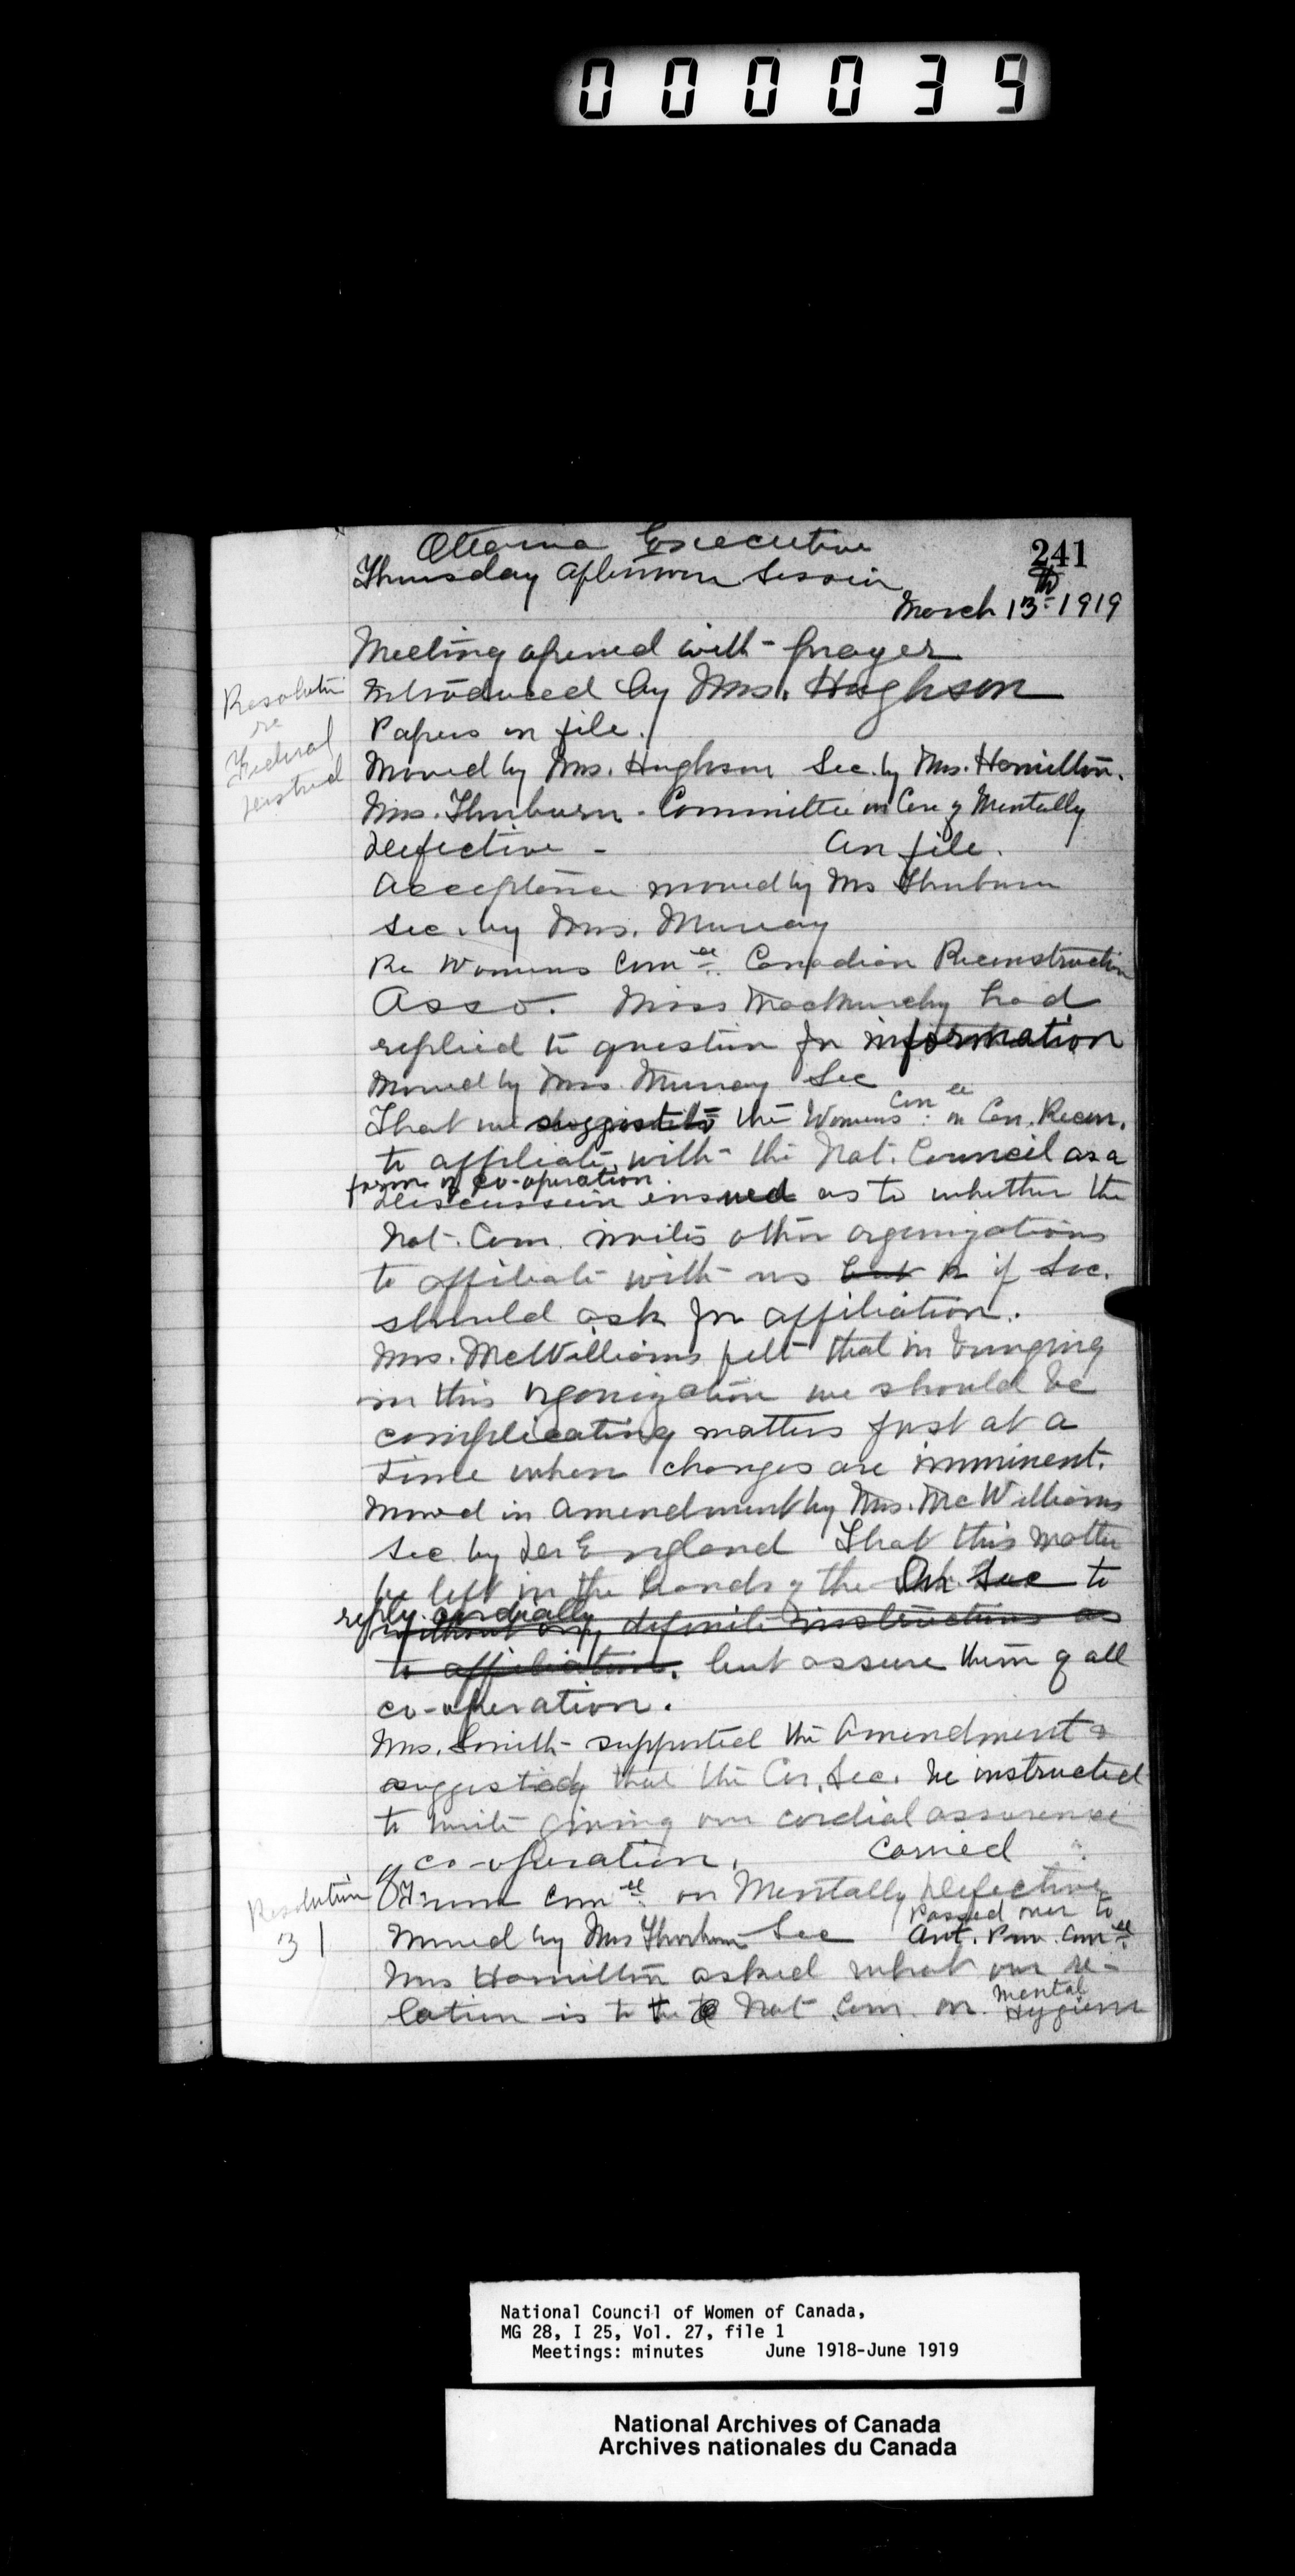 000039
Ottawa Executive
241
Thursday afternoon Session
March 13th 1919
Meeting opened with prayer
Resolution
re
Federal
District
Introduced by Mrs. Hughson
Papers on file.
Moved by Mrs. Hughson Sec. by Mrs. Hamilton.
Mrs. Thorburn - Committee on Care of Mentally
Defective - On file.
Acceptance moved by Mrs Thorburn
Sec. by Mrs. Murray
Re Womens Com ee. Canadian Reconstruction
Asso. Miss MacMurchy had
replied to question for information
Moved by Mrs. Murray Sec
That we the Womens Com ee. on Can. Recon.
to affiliate with the Nat. Council as a
form of co-operation.
Discussion ensued as to whether the
Nat. Coun. invites other organizations
to affiliate with us but or if Soc.
should ask for affiliation.
Mrs. McWilliams felt that in bringing
in this organization we should be
complicating matters just at a
time when changes are imminent.
Moved in amendment by Mrs. McWilliams
Sec by Dr England That this matter
be left in the hands of the Sec to
reply cordially
without any definite instructions as
to affiliation. but assure them of all
co-operation.
Mrs. Smith supported the amendment &
suggested that the Cor. Sec. be instructed
to write giving our cordial assurance
of co-operation. Carried
Resolution
31
From Com ee on Mentally Defective
Moved by Mrs Thorburn Sec passed over to
Ont. Prov. Com ee
Mrs Hamilton asked what our re-
lation is to the Nat. Com. on Mental
Hygiene
National Council of Women of Canada,
MG 28, I 25, Vol. 27, file 1
Meetings: minutes June 1918-June 1919
National Archives of Canada
Archives nationales du Canada